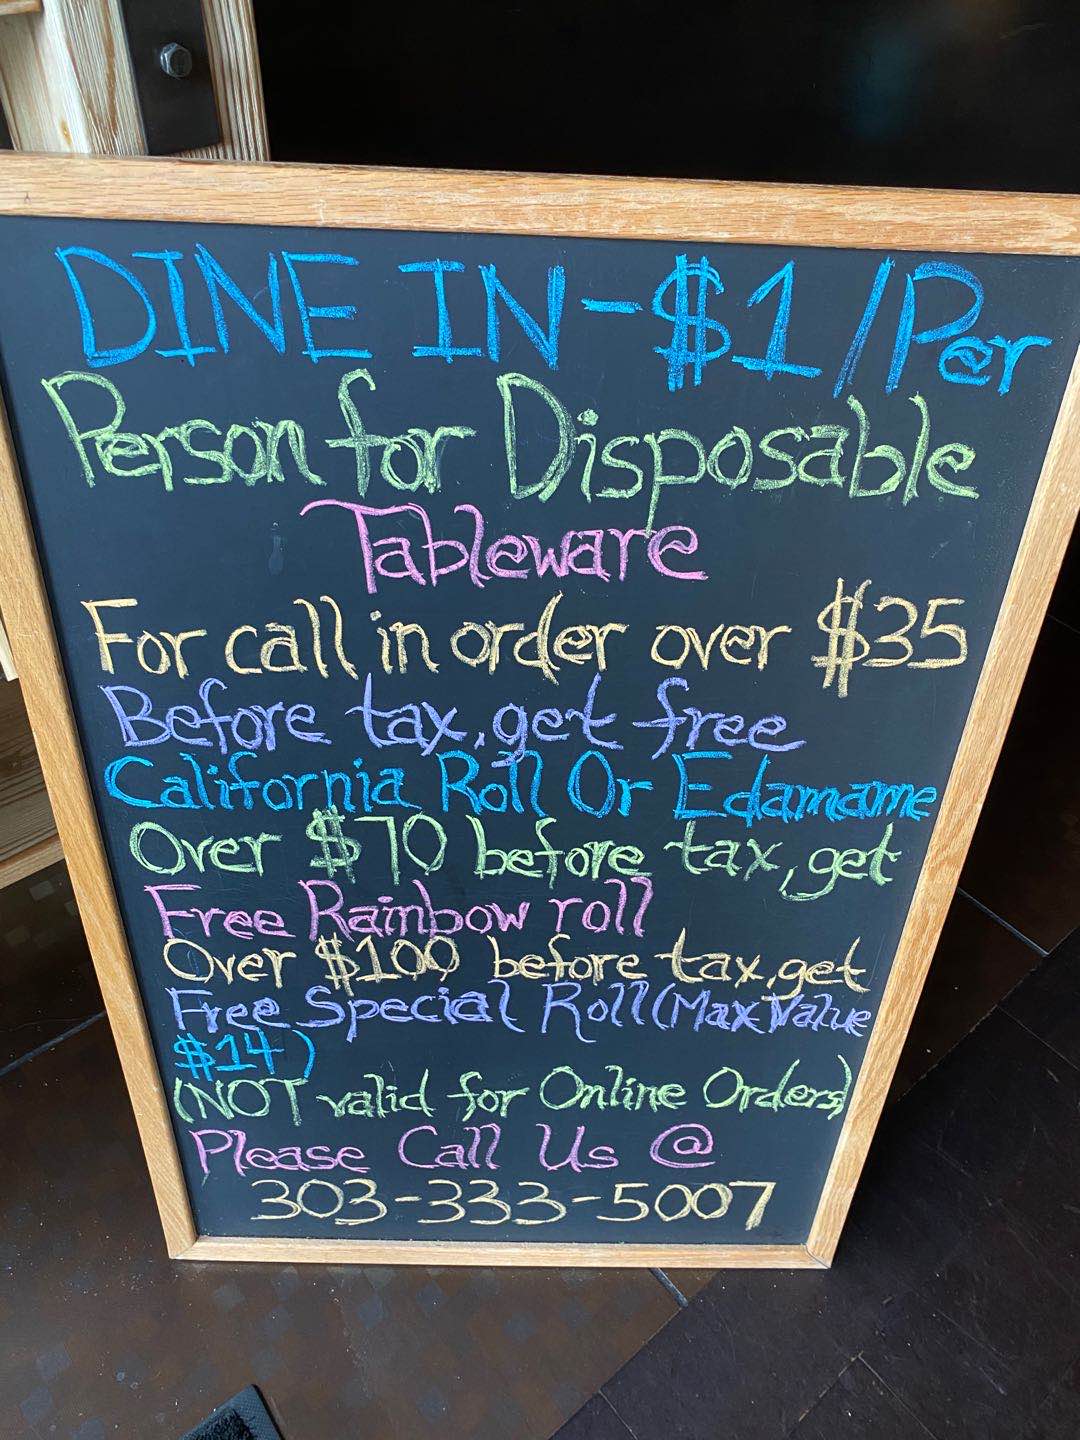 DINE IN-$1/Per
Person for Disposable
Tableware
For call in order over $35
Before tax, get free
California Roll Or Edamame
Over $70 before tax, get
Free Rainbow roll
Over $100 before tax, get
Free Special Roll (Max Value
$14)
(NOT valid for Online Orders)
Please Call Us @
303-333-5007